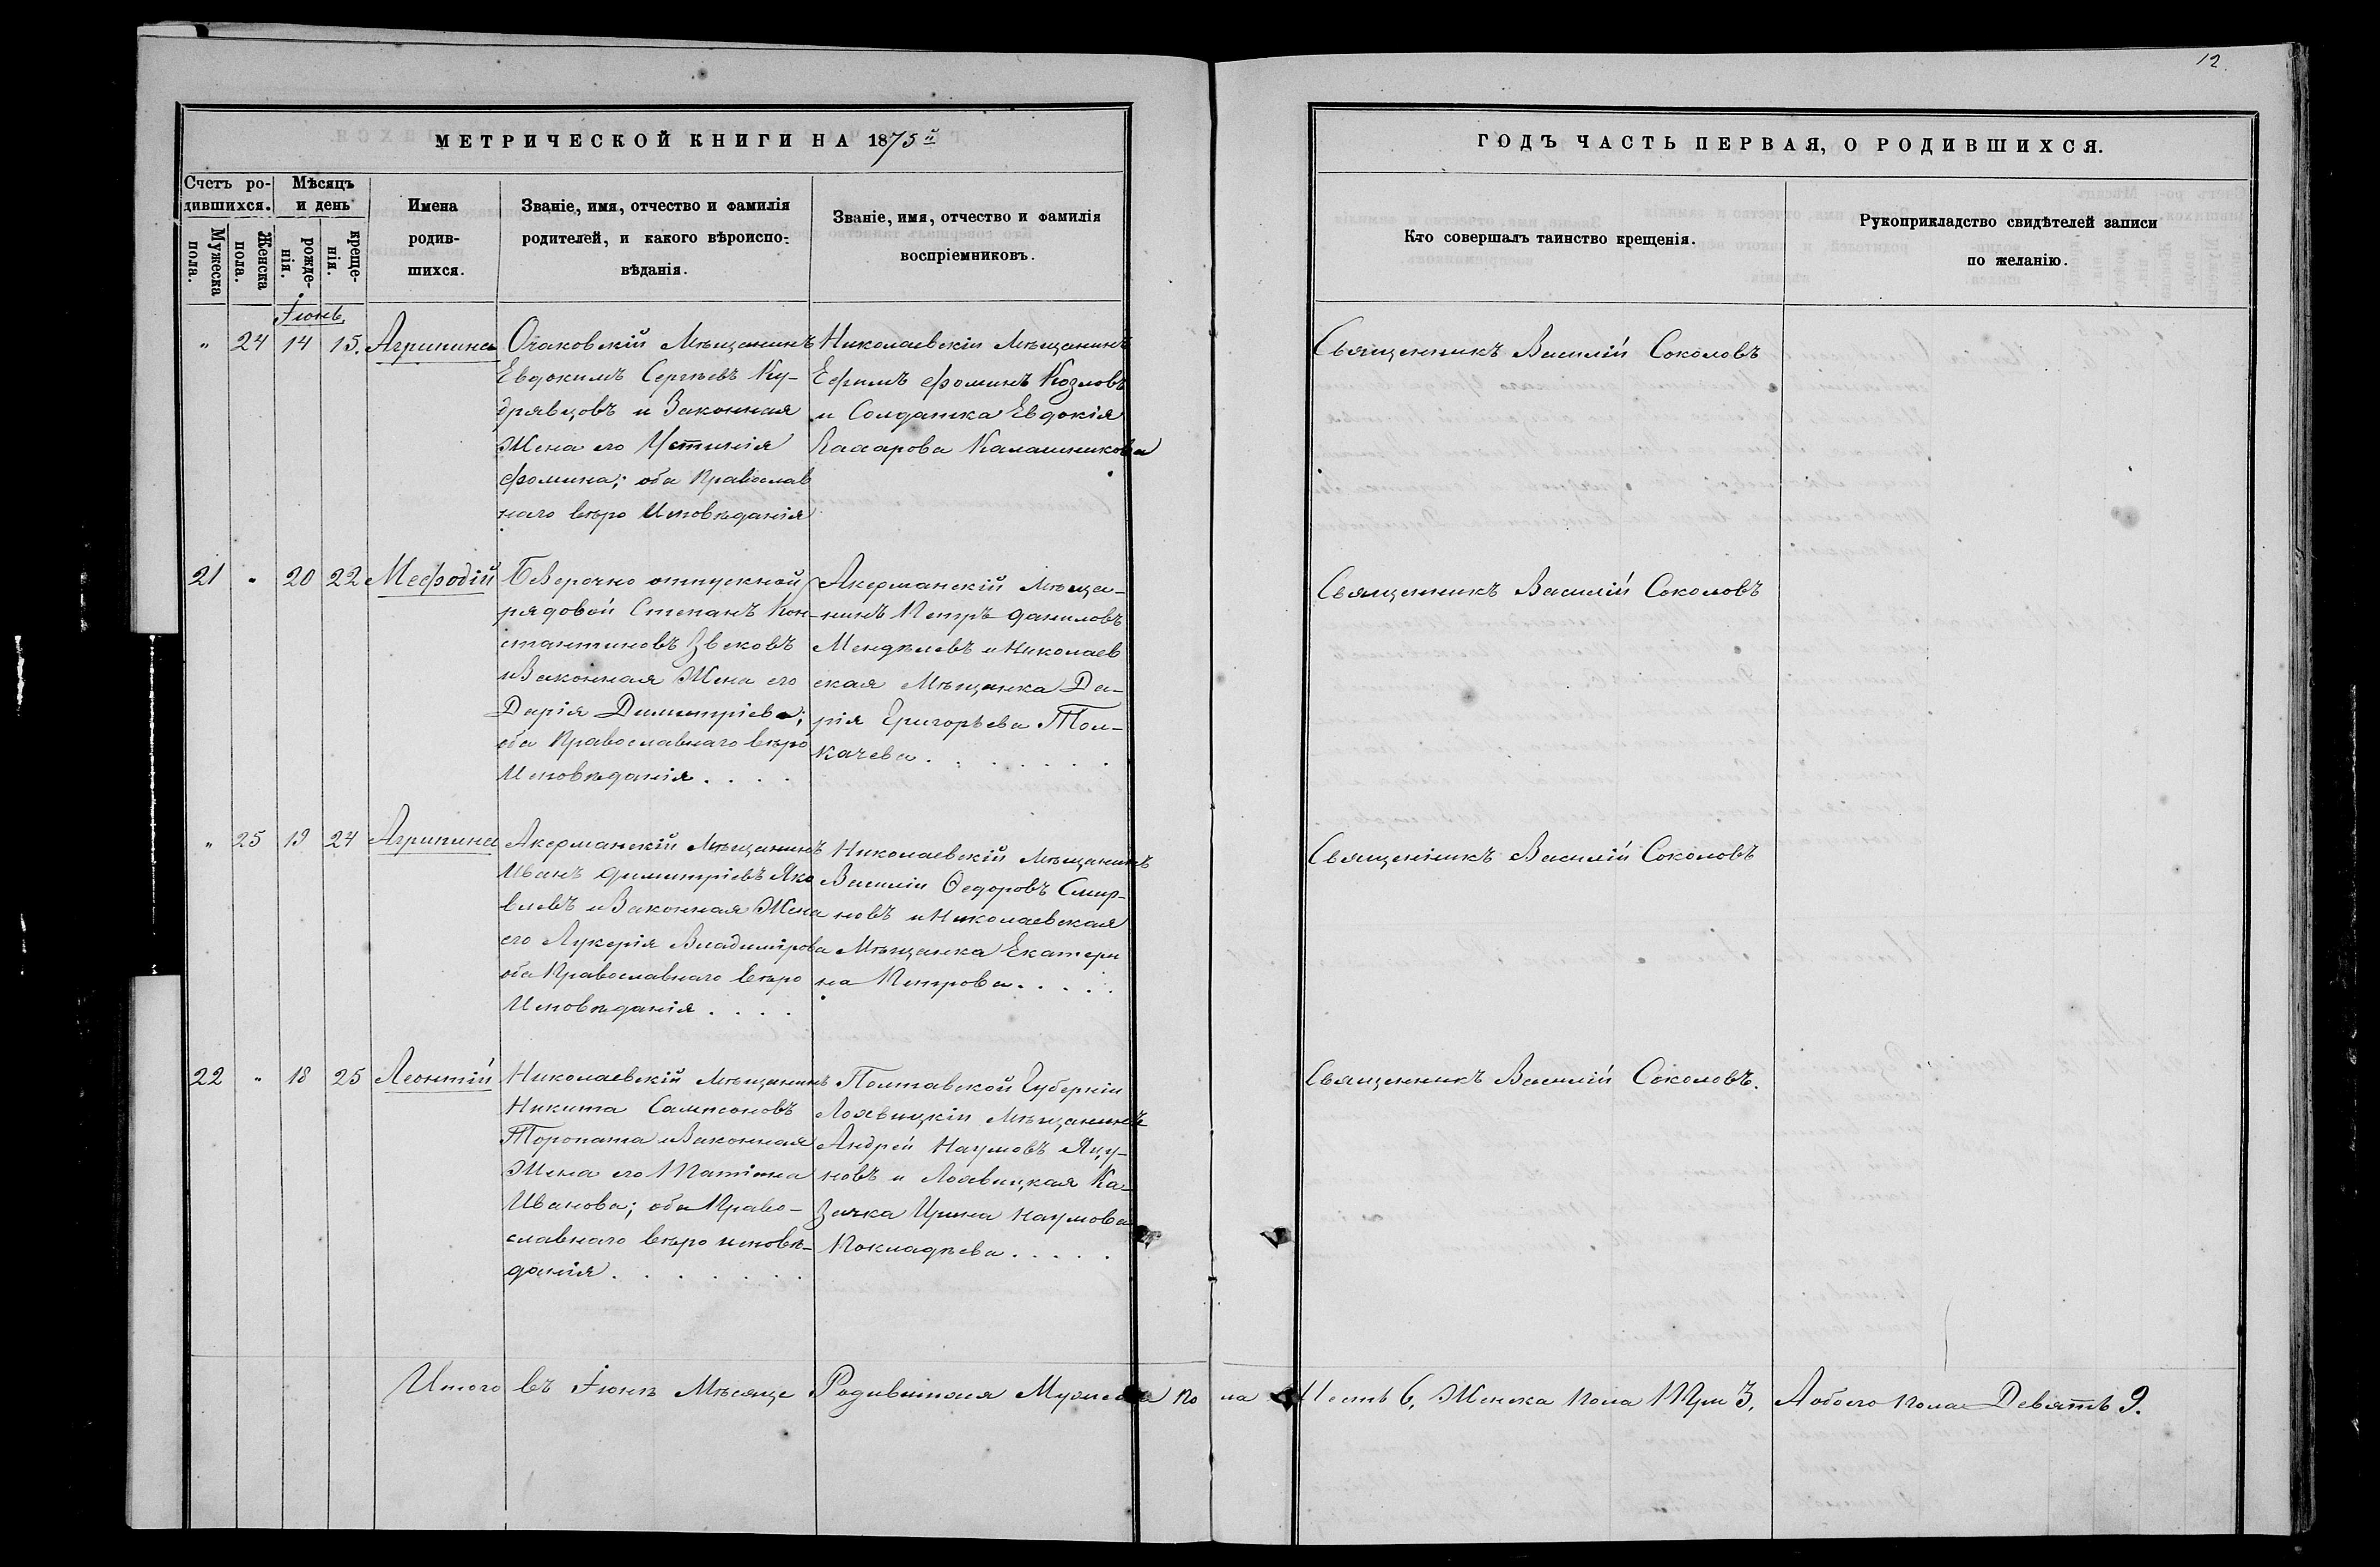 12.
МЕТРИЧЕСКОЙ КНИГИ НА 1875й
ГОДЪ ЧАСТЬ ПЕРВАЯ, О РОДИВШИХСЯ.
Счетъ ро-
дившихся.
Мужеска
пола.
Женска
пола.
Мѣсяцъ
и день
рожде-
нія.
креще-
нія.
Имена
родив-
шихся.
Званіе, имя, отчество и фамилія
родителей, и какого вѣроиспо-
вѣданія.
Званіе, имя, отчество и фамилія
воспріемниковъ.
Кто совершалъ таинство крещенія.
Рукоприкладство свидѣтелей записи
по желанію.
Іюнь
" 24 14 15. Агрипина
Очаковскій Мѣщанинъ
Евдокимъ Сергѣевъ Ку-
дрявцовъ и Законная
Жена его Устинія
Фомина; оба Православ
наго вѣро Исповѣданія
Николаевскіи Мѣщанинъ
Ефимъ Фоминъ Козловъ
и Солдатка Евдокія
Калашникова
Священникъ Василій Соколовъ
21 " 20 22 Мефодій
Безсрочно отпускной
рядовой Степанъ Кон-
стантиновъ Звековъ
и Законная Жена его
Дарія Димитріева;
оба Православнаго вѣро
Исповѣданія . . . .
Акерманскій Мѣща-
нинъ Петръ Даниловъ
Мендѣлевъ и Николаев
ская Мѣщанка Да-
рія Григорьева Тол-
качева . . . . . .
Священникъ Василій Соколовъ
" 25 19 24 Агрипина
Акерманскій Мѣщанинъ
Иванъ Димитріевъ Яко
влевъ и Законная Жена
его Лукерія Владимірова
оба Православнаго вѣро
Исповѣданія . . . .
Николаевскій Мѣщанинъ
Василіи Ѳедоровъ Смир-
новъ и Николаевская
Мѣщанка Екатери
на Петрова . . . . .
Священникъ Василій Соколовъ
22 " 18 25 Леонтій
Николаевскій Мѣщанинъ
Никита Сампсоновъ
Торопата и Законная
Жена его Татіана
Иванова; оба Право-
славнаго вѣро исповѣ-
данія . . . . . . .
Полтавской Губерніи
Лохвицкіи Мѣщанинъ
Андрей Наумовъ Яцу-
новъ и Лохвицкая Ка-
зачка Ирина Наумова
Покладѣева . . . . .
Священникъ Василій Соколовъ.
Итого въ Іюнѣ Мѣсяце Родившихся Мужеска пола Шесть 6, Женска пола Три 3, А обоего пола Девять 9.